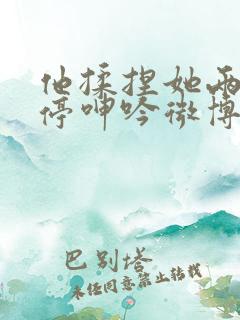 他揉捏她两
停呻吟微博
巴别塔
未经同意禁止转载